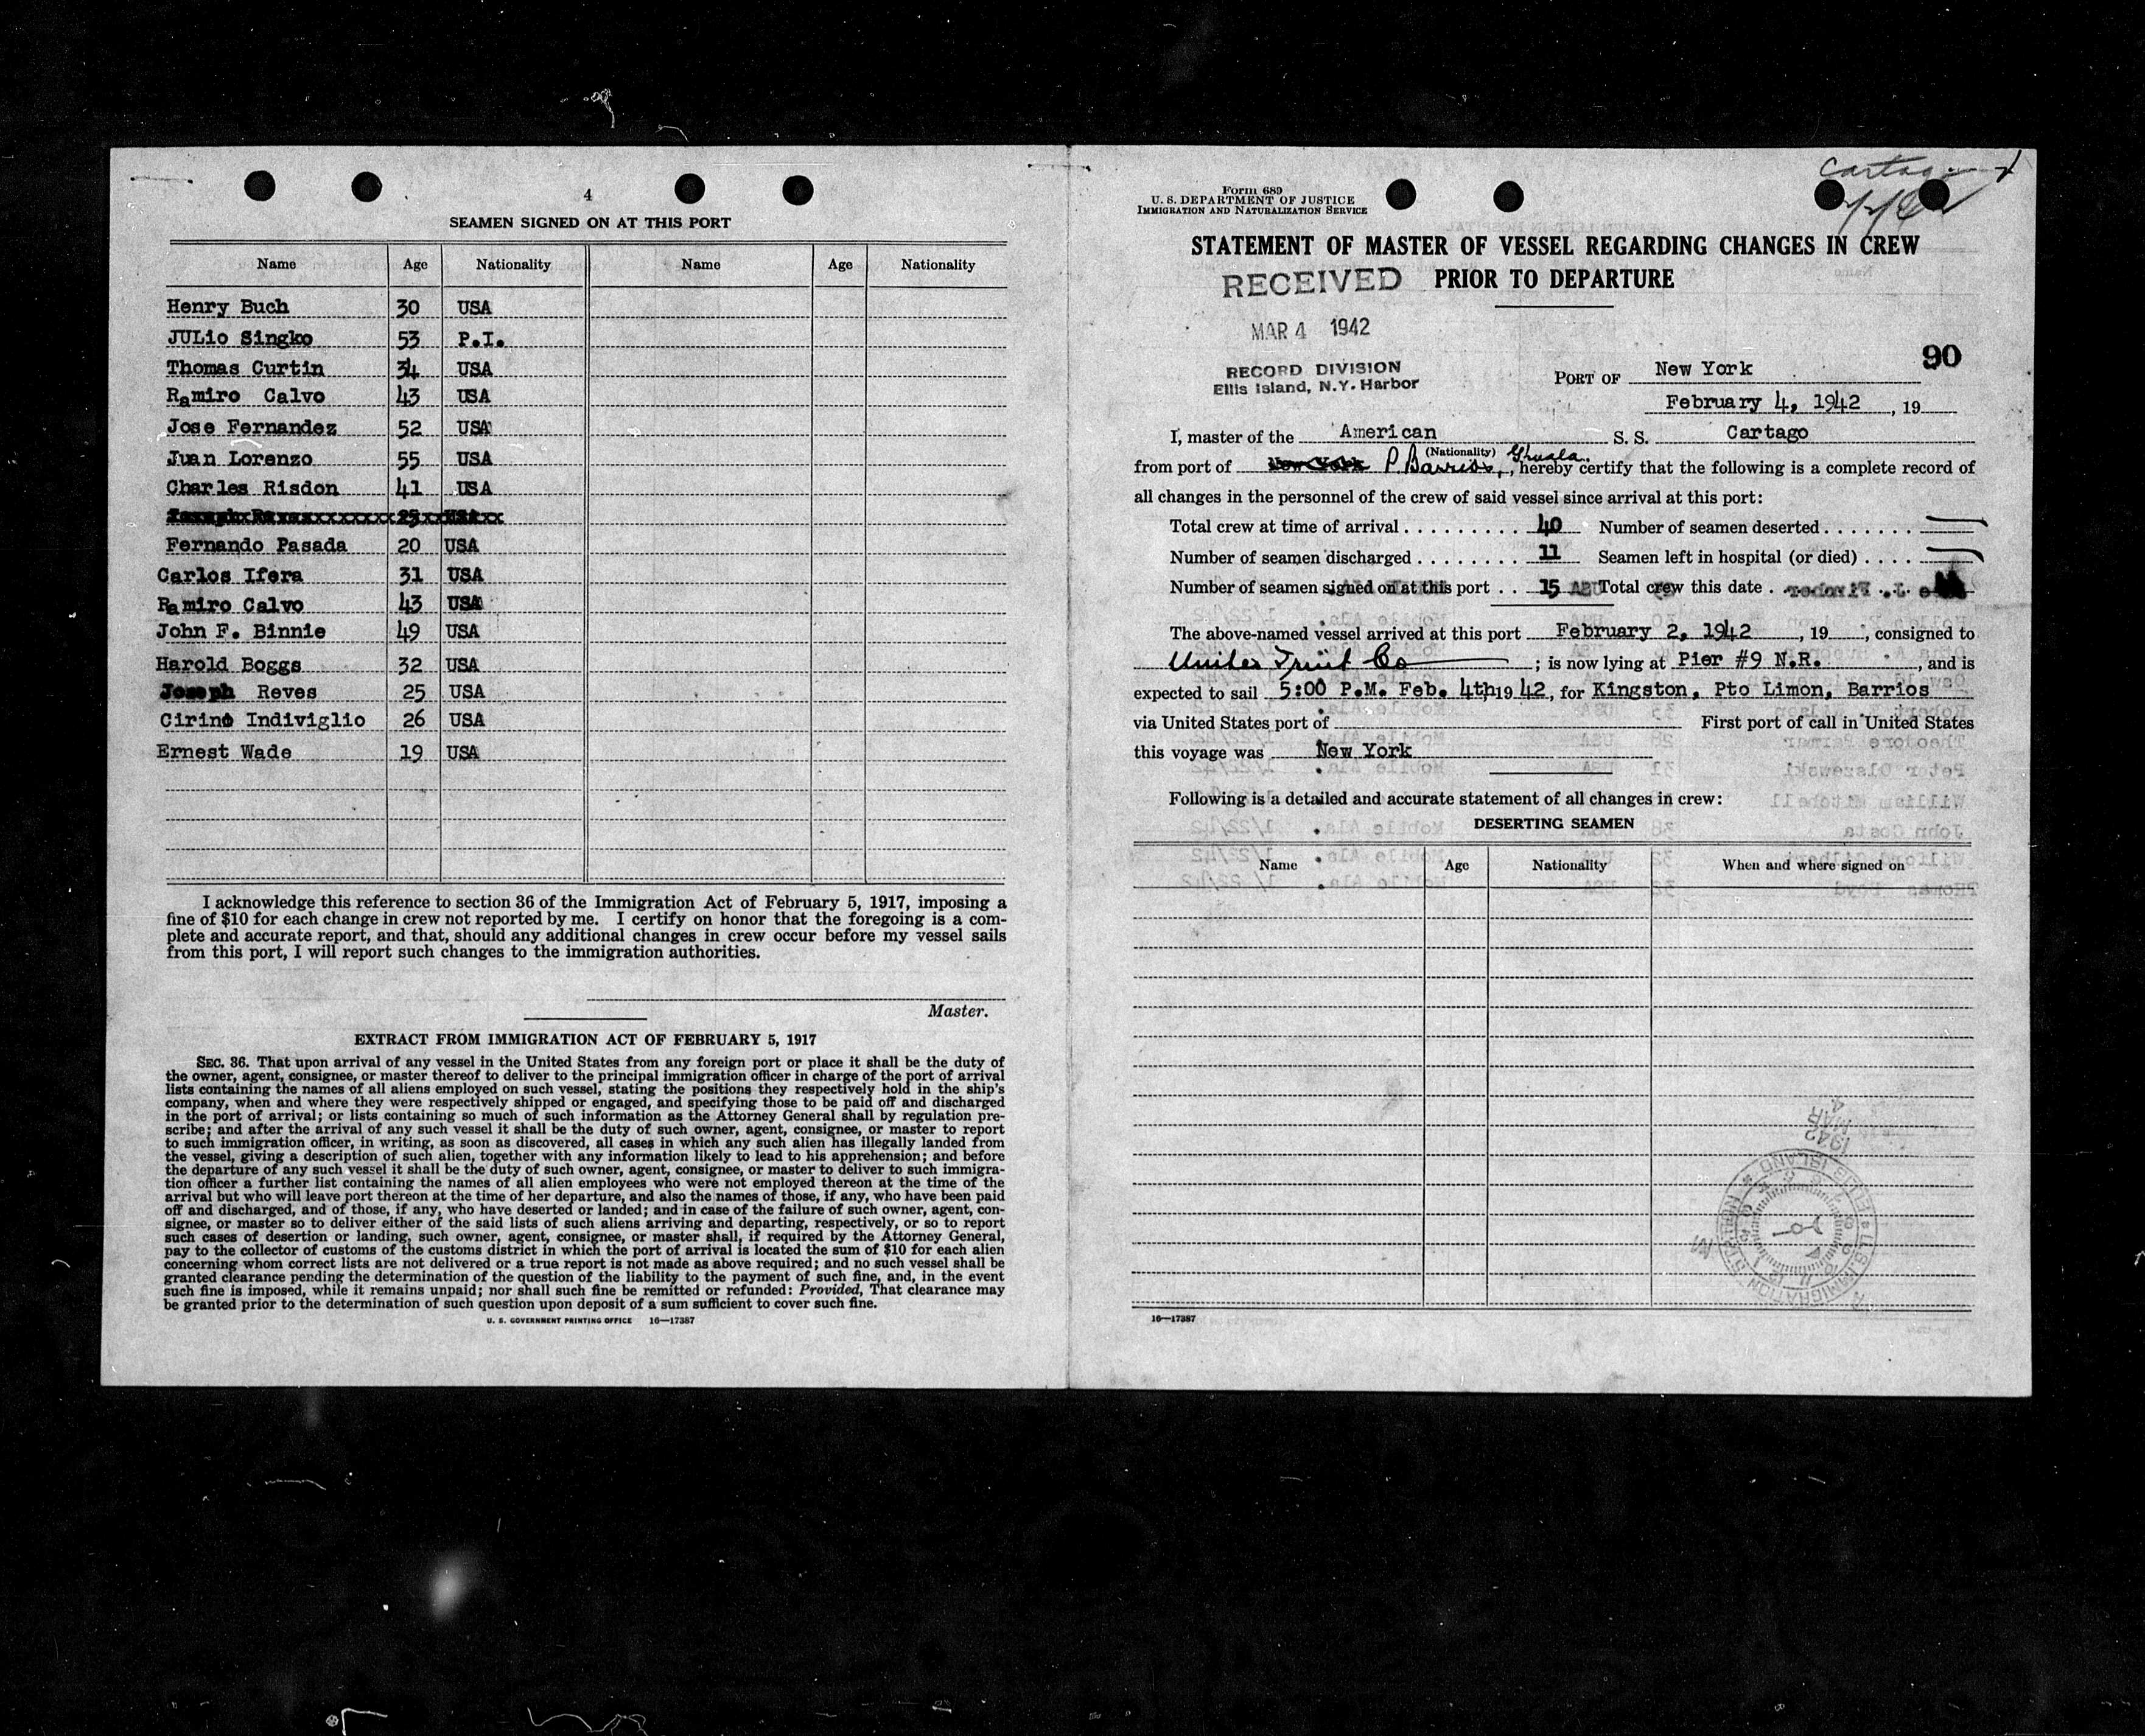 4
SEAMEN SIGNED ON AT THIS PORT
Name Age Nationality Name Age Nationality
Henry Buch 30 USA
JULio Singko 53 P.I.
Thomas Curtin 34 USA
Ramiro Calvo 43 USA
Jose Fernandez 52 USA
Juan Lorenzo 55 USA
Charles Risdon 41 USA
Fernando Pasada 20 USA
Carlos Ifera 31 USA
Ramiro Calvo 43 USA
John F. Binnie 49 USA
Harold Boggs 32 USA
Joseph Reves 25 USA
Cirino Indiviglio 26 USA
Ernest Wade 19 USA
I acknowledge this reference to section 36 of the Immigration Act of February 5, 1917, imposing a
fine of $10 for each change in crew not reported by me. I certify on honor that the foregoing is a com-
plete and accurate report, and that, should any additional changes in crew occur before my vessel sails
from this port, I will report such changes to the immigration authorities.
Master.
EXTRACT FROM IMMIGRATION ACT OF FEBRUARY 5, 1917
SEC. 36. That upon arrival of any vessel in the United States from any foreign port or place it shall be the duty of
the owner, agent, consignee, or master thereof to deliver to the principal immigration officer in charge of the port of arrival
lists containing the names of all aliens employed on such vessel, stating the positions they respectively hold in the ship's
company, when and where they were respectively shipped or engaged, and specifying those to be paid off and discharged
in the port of arrival; or lists containing so much of such information as the Attorney General shall by regulation pre-
scribe; and after the arrival of any such vessel it shall be the duty of such owner, agent, consignee, or master to report
to such immigration officer, in writing, as soon as discovered, all cases in which any such alien has illegally landed from
the vessel, giving a description of such alien, together with any information likely to lead to his apprehension; and before
the departure of any such vessel it shall be the duty of such owner, agent, consignee, or master to deliver to such immigra-
tion officer a further list containing the names of all alien employees who were not employed thereon at the time of the
arrival but who will leave port thereon at the time of her departure, and also the names of those, if any, who have been paid
off and discharged, and of those, if any, who have deserted or landed; and in case of the failure of such owner, agent, con-
signee, or master so to deliver either of the said lists of such aliens arriving and departing, respectively, or so to report
such cases of desertion or landing, such owner, agent, consignee, or master shall, if required by the Attorney General,
pay to the collector of customs of the customs district in which the port of arrival is located the sum of $10 for each alien
concerning whom correct lists are not delivered or a true report is not made as above required; and no such vessel shall be
granted clearance pending the determination of the question of the liability to the payment of such fine, and, in the event
such fine is imposed, while it remains unpaid; nor shall such fine be remitted or refunded: Provided, That clearance may
be granted prior to the determination of such question upon deposit of a sum sufficient to cover such fine.
U. S. GOVERNMENT PRINTING OFFICE 16—17387
Cartago
Form 689
U. S. DEPARTMENT OF JUSTICE
IMMIGRATION AND NATURALIZATION SERVICE
STATEMENT OF MASTER OF VESSEL REGARDING CHANGES IN CREW
PRIOR TO DEPARTURE
RECEIVED
MAR 4 1942
RECORD DIVISION
Ellis Island, N.Y. Harbor
90
PORT OF New York
February 4, 1942, 19
I, master of the American S. S. Cartago
(Nationality)
from port of New York P Barrios, , hereby certify that the following is a complete record of
all changes in the personnel of the crew of said vessel since arrival at this port:
Total crew at time of arrival 40 Number of seamen deserted —
Number of seamen discharged 11 Seamen left in hospital (or died) —
Number of seamen signed on at this port 15 Total crew this date
The above-named vessel arrived at this port February 2, 1942, 19, consigned to
United Fruit Co ; is now lying at Pier #9 N.R., and is
expected to sail 5:00 P.M. Feb. 4th 1942, for Kingston, Pto Limon, Barrios
via United States port of First port of call in United States
this voyage was New York
Following is a detailed and accurate statement of all changes in crew:
DESERTING SEAMEN
Name Age Nationality When and where signed on
MAR 4
1942
U.S. IMMIGRATION
ELLIS ISLAND
16—17387